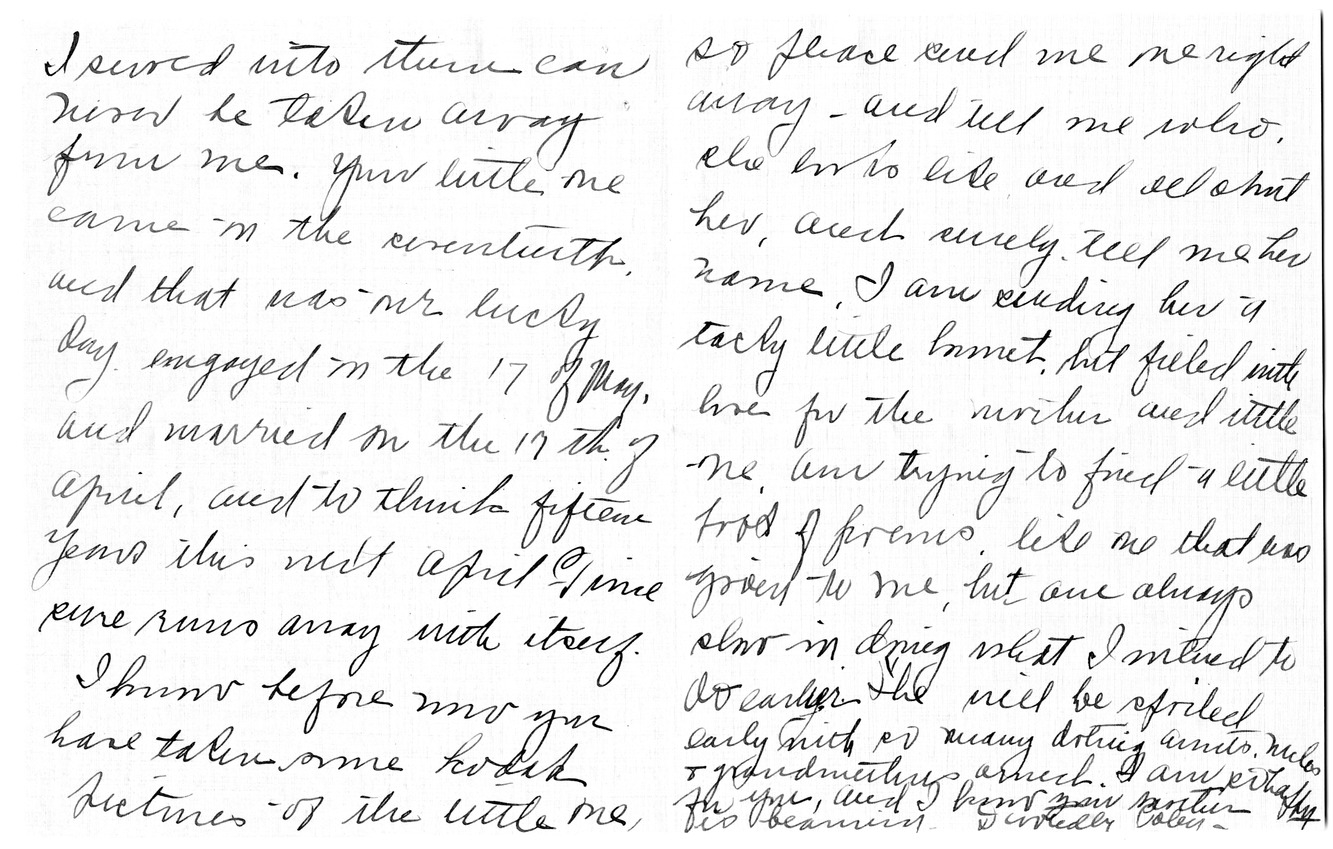 I sewed into them can
never be taken away
from me. Your little one
came on the seventeenth,
and that was our lucky
day. engaged on the 17 of May,
and married on the 17 th. of
April, and to think fifteen
years this next April. Time
sure runs away with itself.
I know before now you
have taken some kodak
pictures of the little one,
so please send me one right
away - and tell me who,
she looks like and all about
her, and surely tell me her
name. I am sending her a
tacky little bonnet, but filled with
love for the mother and little
one, am trying to find a little
book of poems, like one that was
given to me, but am always
slow in doing what I intend to
do earlier. She will be spoiled
early with so many doting aunts, uncles
& grandmothers around. I am so happy
for you, and I know your mother
is beaming. Devotedly